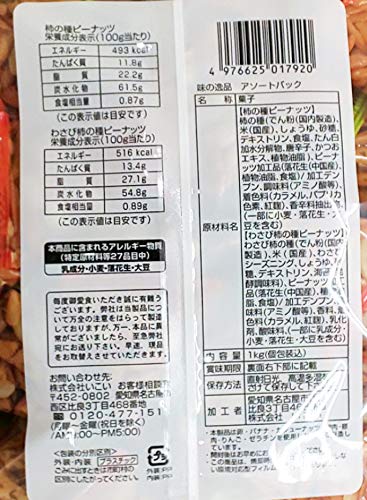 柿の種ピーナッツ
栄養成分表示(100g当たり)
エネルギー 493 kcal
たんぱく質 11.8g
脂質 22.2g
炭水化物 61.5g
食塩相当量 0.87g
(この表示値は目安です)
わさび柿の種ピーナッツ
栄養成分表示(100g当たり)
エネルギー 516 kcal
たんぱく質 13.4g
脂質 27.1g
炭水化物 54.8g
食塩相当量 0.89g
(この表示値は目安です)
本商品に含まれるアレルギー物質
(特定原材料等27品目中)
乳成分・小麦・落花生・大豆
毎度御愛食いただき誠に有難う
ございます。弊社は当製品につい
て万全の注意をはらって製造して
おりますが、万一、本品に異常
がございましたら、至急弊社宛に
お送り下さい。早速、現品
とお取替えさせていただきます。
お問い合わせ先
株式会社いこい お客様相談
〒452-0802 愛知県名古屋市
西区比良3丁目468番地
0120-477-151
(月曜～金曜(祝日を除く)
AM10:00～PM5:00)
<包装の分別区分>
外装・内装 プラスチック
ごみに出すときは市町村の
区分に従ってください。
プラ
外装:PP
内装:PP
4 976625 017920
味の逸品 アソートパック
名称 菓子
原材料名
【柿の種ピーナッツ】
柿の種(でん粉(国内製造)、
米(国産)、しょうゆ、砂糖、
デキストリン、食塩、たん白
加水分解物、唐辛子、かつお
エキス、植物油脂)、ピー
ナッツ加工品(落花生(中国産)、
植物油脂、食塩)/加工デン
プン、調味料(アミノ酸等)、
着色料(カラメル、パプリカ
色素、紅麹)、香辛料抽出物、
(一部に小麦・落花生・大
豆を含む)
【わさび柿の種ピーナッツ】
わさび柿の種(でん粉(国内
製造)、米(国産)、わさび
シーズニング、しょうゆ、砂
糖、デキストリン、海苔、
酵調味料)、ピーナッツ加工
品(落花生(中国産)、植物
油脂、食塩)/加工デンプン、
調味料(アミノ酸等)、香料、
着色料(カラメル、紅麹)、乳化
剤、(一部に乳成分・小
麦・落花生・大豆を含む)
内容量 1kg(個包装込)
賞味期限 裏面右下部に記載
保存方法 直射日光、高温多湿
さけて保存して
加工者
愛知県名古屋市
比良3丁目468番
・本製品は卵・バナナ・カシューナッツ
肉・りんご・ゼラチンを使用した